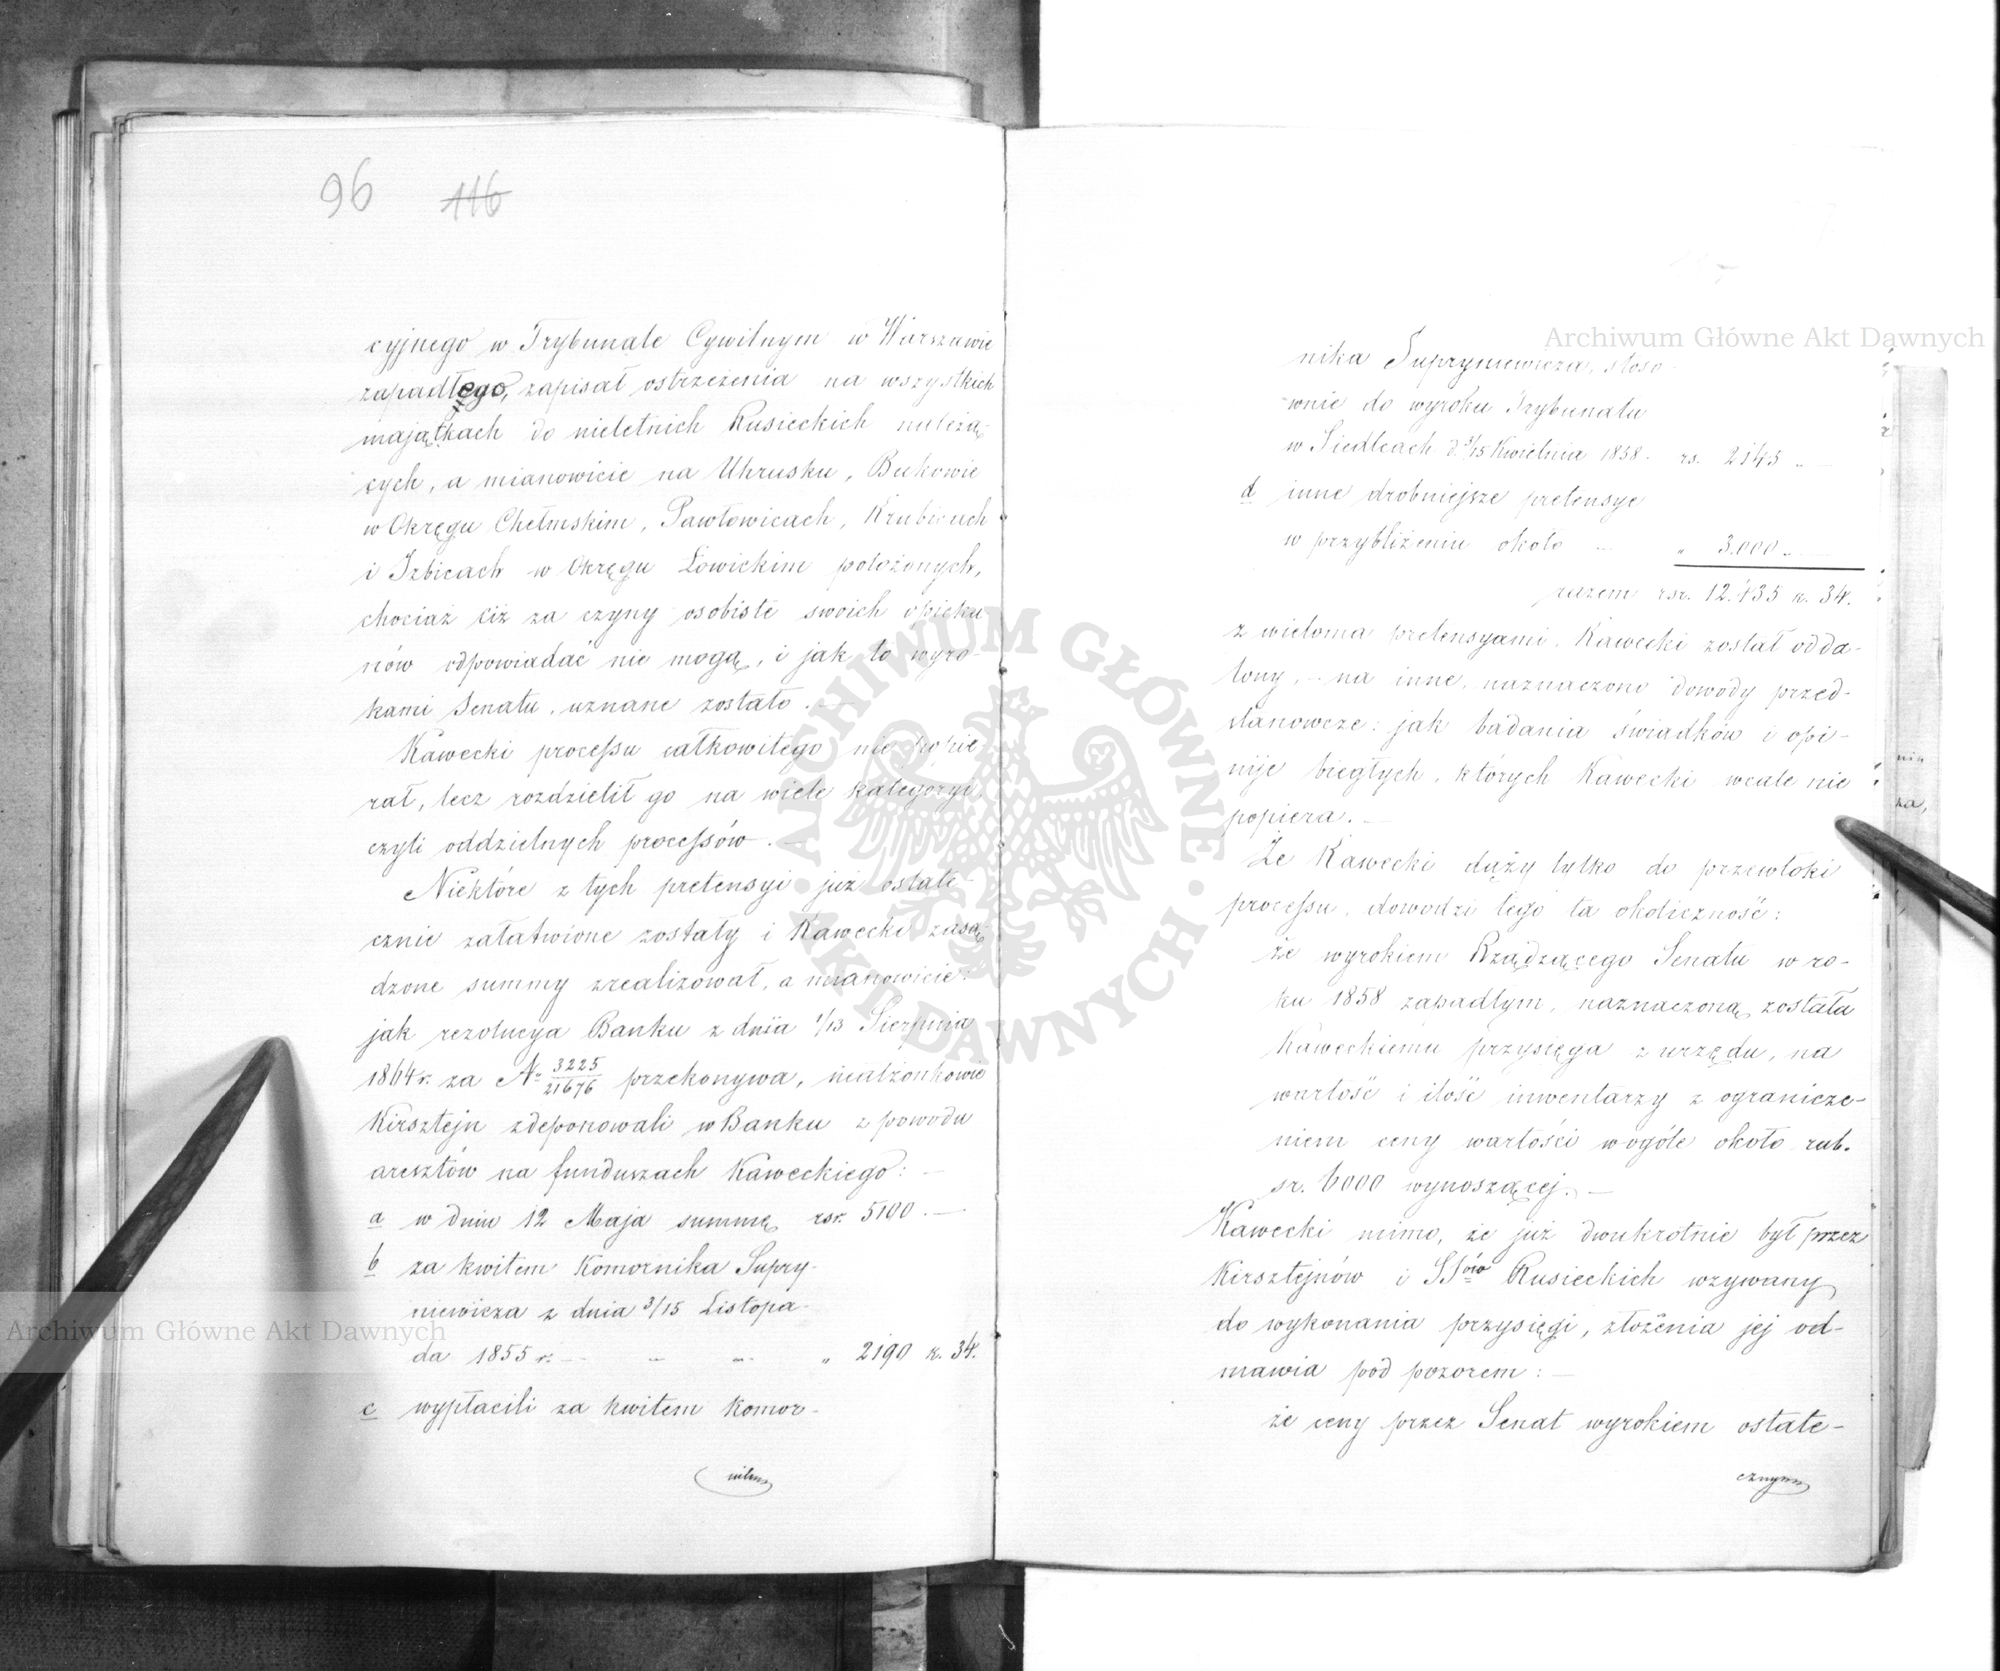 96 116
cyjnego w Trybunale Cywilnym w Warszawie
zapadłego, zapisał ostrzeżenia na wszystkich
majątkach do nieletnich Rusieckich należą-
cych, a mianowicie na Uhrusku, Bukowie
w Okręgu Chełmskim, Pawłowicach, Krubicach
i Izbicach w Okręgu Łowickim położonych,
chociaż ciż za czyny osobiste swoich opieku
nów odpowiadać nie mogą, i jak to wyro-
kami Senatu, uznane zostało. —
Kawecki processu całkowitego nie popie-
rał, lecz rozdzielił go na wiele kategoryi
czyli oddzielnych processów. —
Niektóre z tych pretensyi już ostate-
cznie załatwione zostały i Kawecki zasą-
dzone summy zrealizował, a mianowicie:
jak rezolucya Banku z dnia 1/13 Sierpnia
1864 r. za № 3225/21676 przekonywa, małżonkowie
Kirsztejn zdeponowali w Banku z powodu
aresztów na funduszach Kaweckiego: —
a w dniu 12 Maja summę rsr. 5100. —
b za kwitem Komornika Supry-
niewicza z dnia 3/15 Listopa-
da 1855 r. — „ „ „ 2190 k. 34.
c wypłacili za kwitem Komor-
nika Supryniewicza, stoso-
wnie do wyroku Trybunału
w Siedlcach d. 3/15 Kwietnia 1858. rs. 2145 „ —
d inne drobniejsze pretensye
w przybliżeniu około — „ 3.000 „ —
razem rsr. 12.435 k. 34.
z wieloma pretensyami, Kawecki został odda-
lony, — na inne, naznaczono dowody przed-
stanowcze: jak badania świadków i opi-
nije biegłych, których Kawecki wcale nie
popiera. —
Że Kawecki dąży tylko do przewłoki
processu, dowodzi tego ta okoliczność:
że wyrokiem Rządzącego Senatu w ro-
ku 1858 zapadłym, naznaczoną została
Kaweckiemu przysięga z urzędu, na
wartość i ilość inwentarzy z ogranicze-
niem ceny wartości wogóle około rub.
sr. 6000 wynoszącej. —
Kawecki mimo, że już dwukrotnie był przez
Kirsztejnów i SSów Rusieckich wzywany
do wykonania przysięgi, złożenia jej od-
mawia pod pozorem: —
że ceny przez Senat wyrokiem ostate-
cznym
Archiwum Główne Akt Dawnych
Archiwum Główne Akt Dawnych
ARCHIWUM GŁÓWNE · AKT DAWNYCH ·